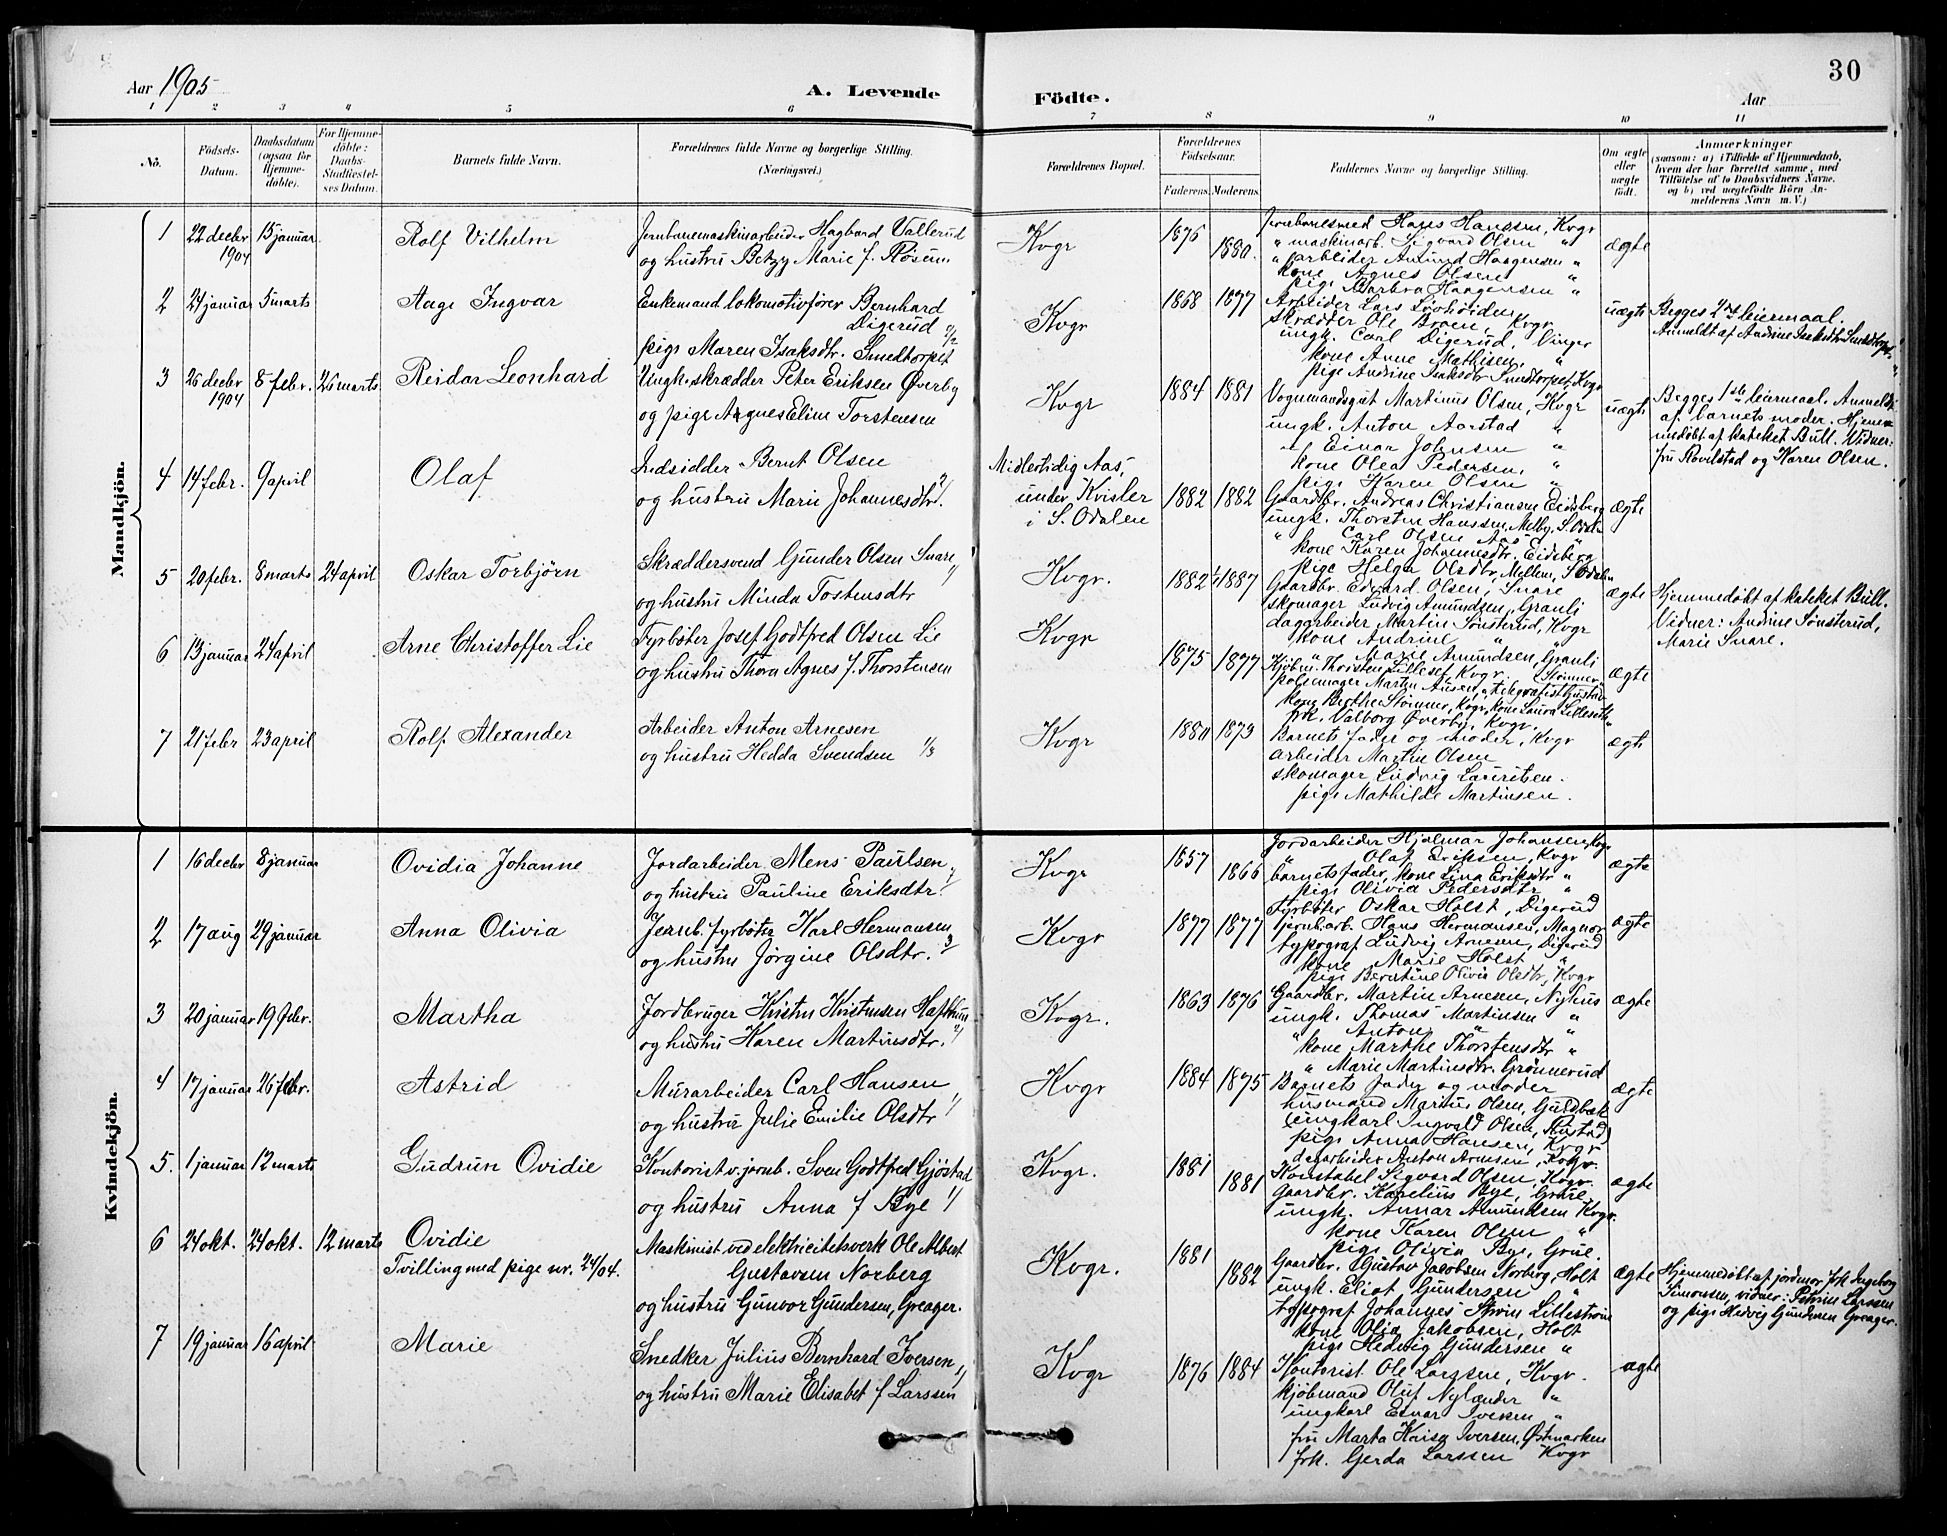 30
Aar 1905
A. Levende
Födte.
Aar
1 2 3 4 5 6 7 8 9 10 11
No.
Födsels-Datum.
Daabsdatum (ogsaa for Hjemme-döbte).
For Hjemme-döbte: Daabs-Stadfæstel-ses Datum.
Barnets fulde Navn.
Forældrenes fulde Navne og borgerlige Stilling. (Næringsvei.)
Forældrenes Bopæl.
Forældrenes Födselsaar.
Faderens. Moderens.
Faddernes Navne og borgerlige Stilling.
Om ægte eller uægte födt.
Anmærkninger
(saasom: a) i Tilfælde af Hjemmedaab,
hvem der har forrettet samme, med
Tilföielse af to Daabsvidners Navne.
og b) ved uægtefödte Börn An-
melderens Navn m. V.)
Mandkjön.
1 22 decbr 1904 15 januar Rolf Vilhelm
Jernbanemaskinarbeider Hagband Vallerud
og hustru Betzy Marie f. Røsum
Kvgr 1876 1880 ægte
Jernbanesmed Hans Hanssen, Kvgr
" maskinarb. Sigvard Olsen "
" arbeider Amund Haagensen "
kone Agnes Olsen "
pige Barbra Haagensen "
2 24 januar 5 marts Aage Ingvar
Enkemand lokomotivfører Bernhard
Digerud
pige Maren Isaksdtr. Smedtorpet
Kvgr 1868 1877 uægte
Arbeider Lars
skrædder Ole Braen, Kvgr
ungk. Carl Digerud, Vinger
kone Anne Mathisen, "
pige Andrine Isaksdtr Smedtorpet, Kvgr
Begges 2det leiermaal.
Anmeldt af Andrine Isaksdtr Smedtorpet
3 26 decbr 1904 8 febr. 26 marts Reidar Leonhard
Ungk. skrædder Peter Eriksen Øverby
og pige Agnes Eline Torstensen
Kvgr 1884 1881 uægte
Vognmandsgut Martinus Olsen, Kvgr
ungk. Anton Aarstad "
" Einar Johnsen "
kone Olea Pedersen, "
pige Karen Olsen "
Begges 1ste leiermaal. Anmeldt
af barnets moder. Hjem-
medøbt af kateket Bull. Vidner:
fru Rovilstad og Karen Olsen.
4 14 febr. 9 april Olaf
Indsidder Bernt Olsen
og hustru Marie Johannesdtr.
Midlertidig Aas,
under Kvisler
i S. Odalen
1882 1882 ægte
Gaardbr. Andreas Christiansen Eidsberg
ungk. Thorsten Hanssen, Melby, S. Odalen
" Carl Olsen Aas "
kone Karen Johannesdtr. Eidsberg
pige Helga Olsdtr, Mellem, S Odalen
5 20 febr. 8 marts 24 april Oskar Torbjørn
Skræddersvend Gunder Olsen Snare
og hustru Minda Tostensdtr
Kvgr. 1882 1887 ægte
Gaardbr. Edvard Olsen, Snare
skomager Ludvig Amundsen, Granli
dagarbeider Martin Sønsterud, Kvgr
kone Andrine " "
" Marie Amundsen, Granli
Hjemmedøbt af kateket Bull.
Vidner: Andrine Sønsterud,
Marie Snare.
6 13 januar 24 april Arne Christoffer Lie
Fyrbøter Josef Godtfred Olsen Lie
og hustru Thora Agnes f. Thorstensen
Kvgr 1875 1877 ægte
Kjøbm. Thorsten Lilleset, Kvgr.
pølsemager Martin telegrafist Gustav Stømner
kone Berthe Stømner, Kvgr, kone Laura Lilleseth "
frk. Valborg Øverby, Kvgr.
7 21 febr 23 april Rolf Alexander
Arbeider Anton Arnesen
og hustru Hedda Svendsen
Kvgr 1880 1873 ægte
Barnets fader og moder, Kvgr
arbeider Martin Olsen
skomager Ludvig Lauritzen.
pige Mathilde Martinsen.
Kvindekjön.
1 16 decbr 8 januar Ovidia Johanne
Jordarbeider Mens Paulsen
og hustru Pauline Eriksdtr.
Kvgr 1857 1866 ægte
Jordarbeider Hjalmar Johansen, Kvgr
" Olaf Eriksen, Kvgr
barnets fader, kone Lina Eriksdtr "
pige Olivia Pedersdtr "
2 17 aug 29 januar Anna Olivia
Jernb. fyrbøter Karl Hermansen
og hustru Jørgine Olsdtr.
Kvgr 1877 1877 ægte
Fyrbøter Oskar Holst, Digerud
jernb.arb. Hans Hermansen, Magnor
typograf Ludvig Arnesen, Digerud
kone Marie Holst "
pige Berntine Olivia Olsdtr, Kvgr
3 20 januar 19 febr. Martha
Jordbruger Kristen Kristensen
og hustru Karen Martinsdtr.
Kvgr. 1863 1876 ægte
Gaardbr. Martin Arnesen, Nyhus
ungk. Thomas Martinsen "
" Anton " "
kone Marthe Thorstensdtr "
" Marie Martinsdtr. Grønnerud
4 17 januar 26 febr. Astrid
Murarbeider Carl Hansen
og hustru Julie Emilie Olsdtr
Kvgr 1884 1875 ægte
Barnets fader og moder
husmand Marius Olsen, Guldbæk
ungkarl Ingvald Olsen, Rustad
pige Anna Hansen, Kvgr
dagarbeider Anton Arnesen, Kvgr.
5. 1 januar 12 marts Gudrun Ovidie
Kontorist v. jernb. Sven Godtfred Gjöstad
og hustru Anna f Bye
Kvgr. 1881 1881 ægte
Konstabel Sigvard Olsen, Kvgr.
Gaardbr. Karelius Bye, Grue
ungk. Annar Amundsen Kvgr.
kone Karen Olsen "
pige Olivia Bye, Grue.
6 24 okt. 24 okt. 12 marts Ovidie
Tvilling med pige nr. 24/04.
Maskinist ved elektricitetsverk Ole Albert
Gustavsen Norberg
og hustru Gunvor Gundersen, Greager.
Kvgr. 1881 1882 ægte
Gaardbr. Gustav Jacobsen Norberg, Holt
ungk. Eliot Gundersen "
typograf Johannes Lillestrøm
kone Olia Jakobsen, Holt
pige Hedvig Gundersen "
Hjemmedøbt af jordmor frk Ingeborg
Simonsen, vidner: Petrine Larssen
og pige Hedvig Gundersen Greager.
7 19 januar 16 april Marie
Snedker Julius Bernhard Iversen
og hustru Marie Elisabet f Larssen
Kvgr 1876 1884 ægte
Kontorist Ole Larssen, Kvgr.
kjøbmand Oluf Nylænder "
ungkarl Einar Iversen "
fru Marta Kaisa Iversen, Østmarken
frk. Gerda Larssen Kvgr